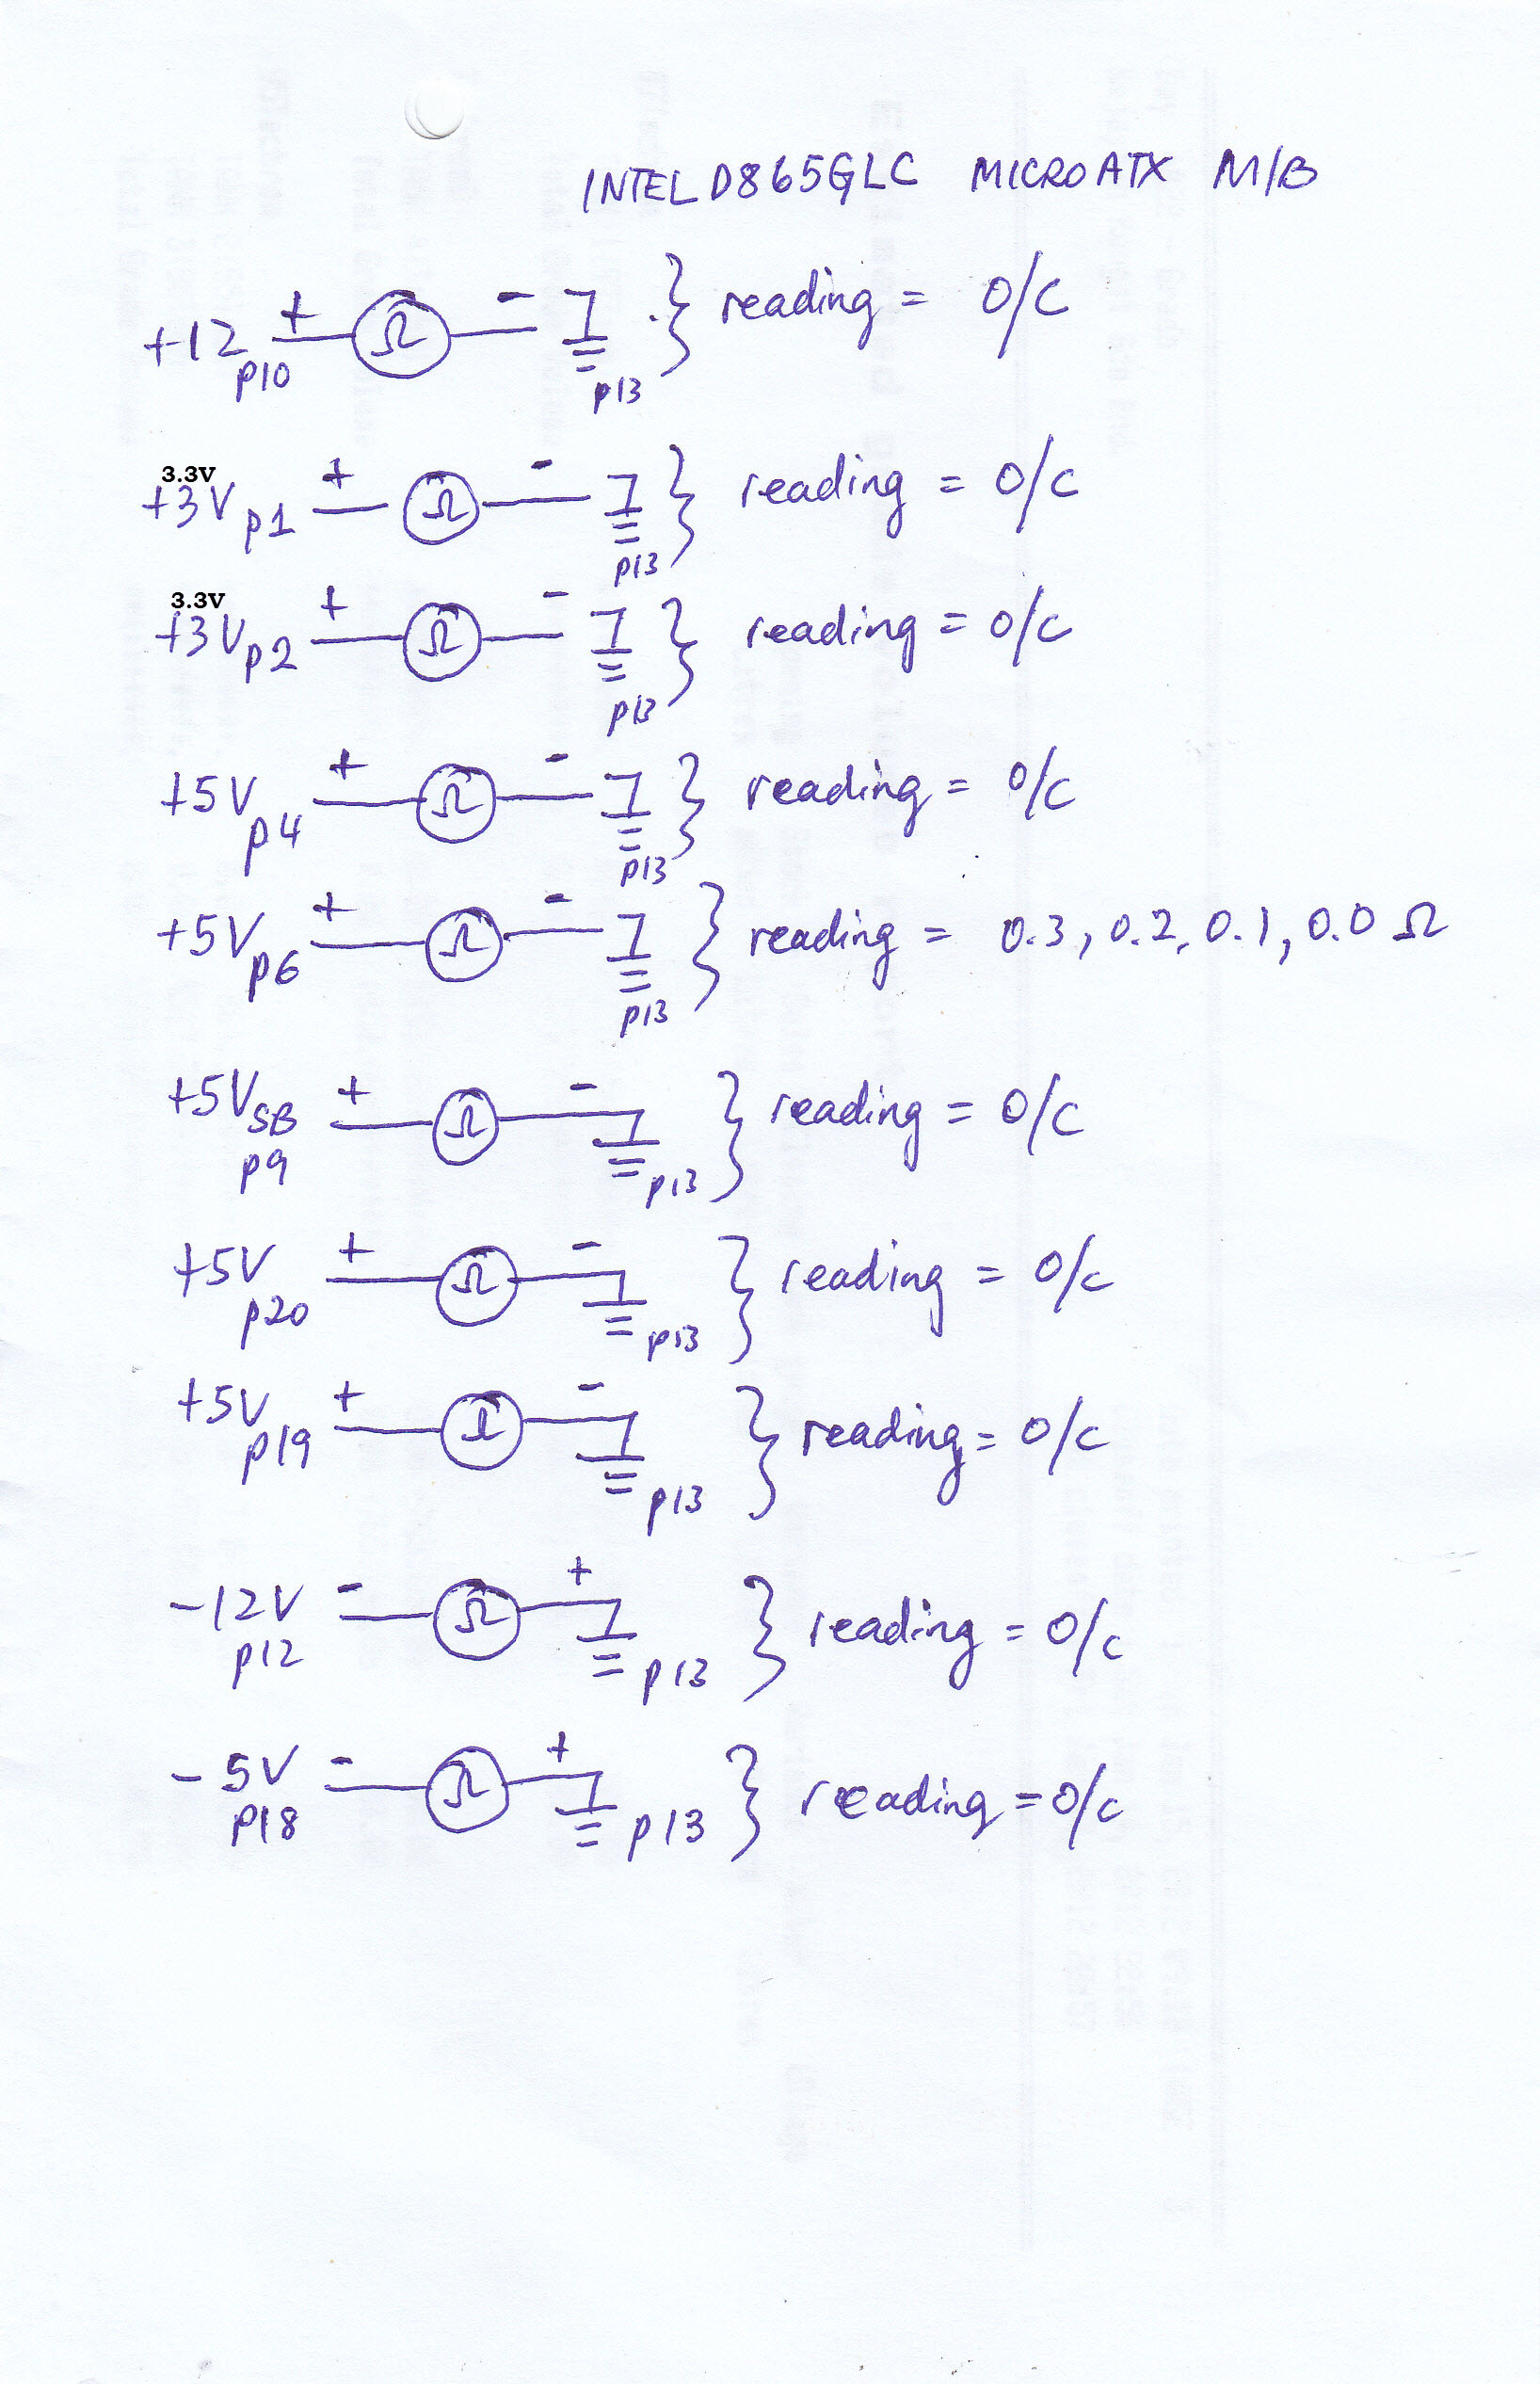 INTEL D865GLC MICROATX M/B
+12 p10 + Ω - p13 } reading = O/C
3.3V
+3V p1 + Ω - p13 } reading = O/C
3.3V
+3V p2 + Ω - p13 } reading = O/C
+5V p4 + Ω - p13 } reading = O/C
+5V p6 + Ω - p13 } reading = 0.3, 0.2, 0.1, 0.0 Ω
+5VSB p9 + Ω - p13 } reading = O/C
+5V p20 + Ω - p13 } reading = O/C
+5V p19 + Ω - p13 } reading = O/C
-12V p12 - Ω + p13 } reading = O/C
-5V p18 - Ω + p13 } reading = O/C